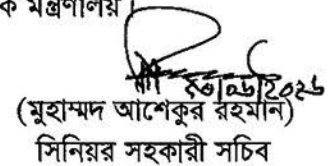 ক মন্ত্রণালয়।
(মুহাম্মদ আশেকুর রহমান)
সিনিয়র সহকারী সচিব